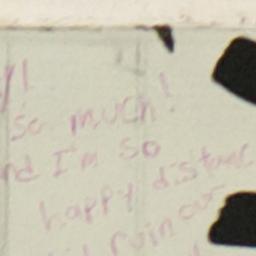 y!
so much!
nd I'm so
happy distanc
ruin our